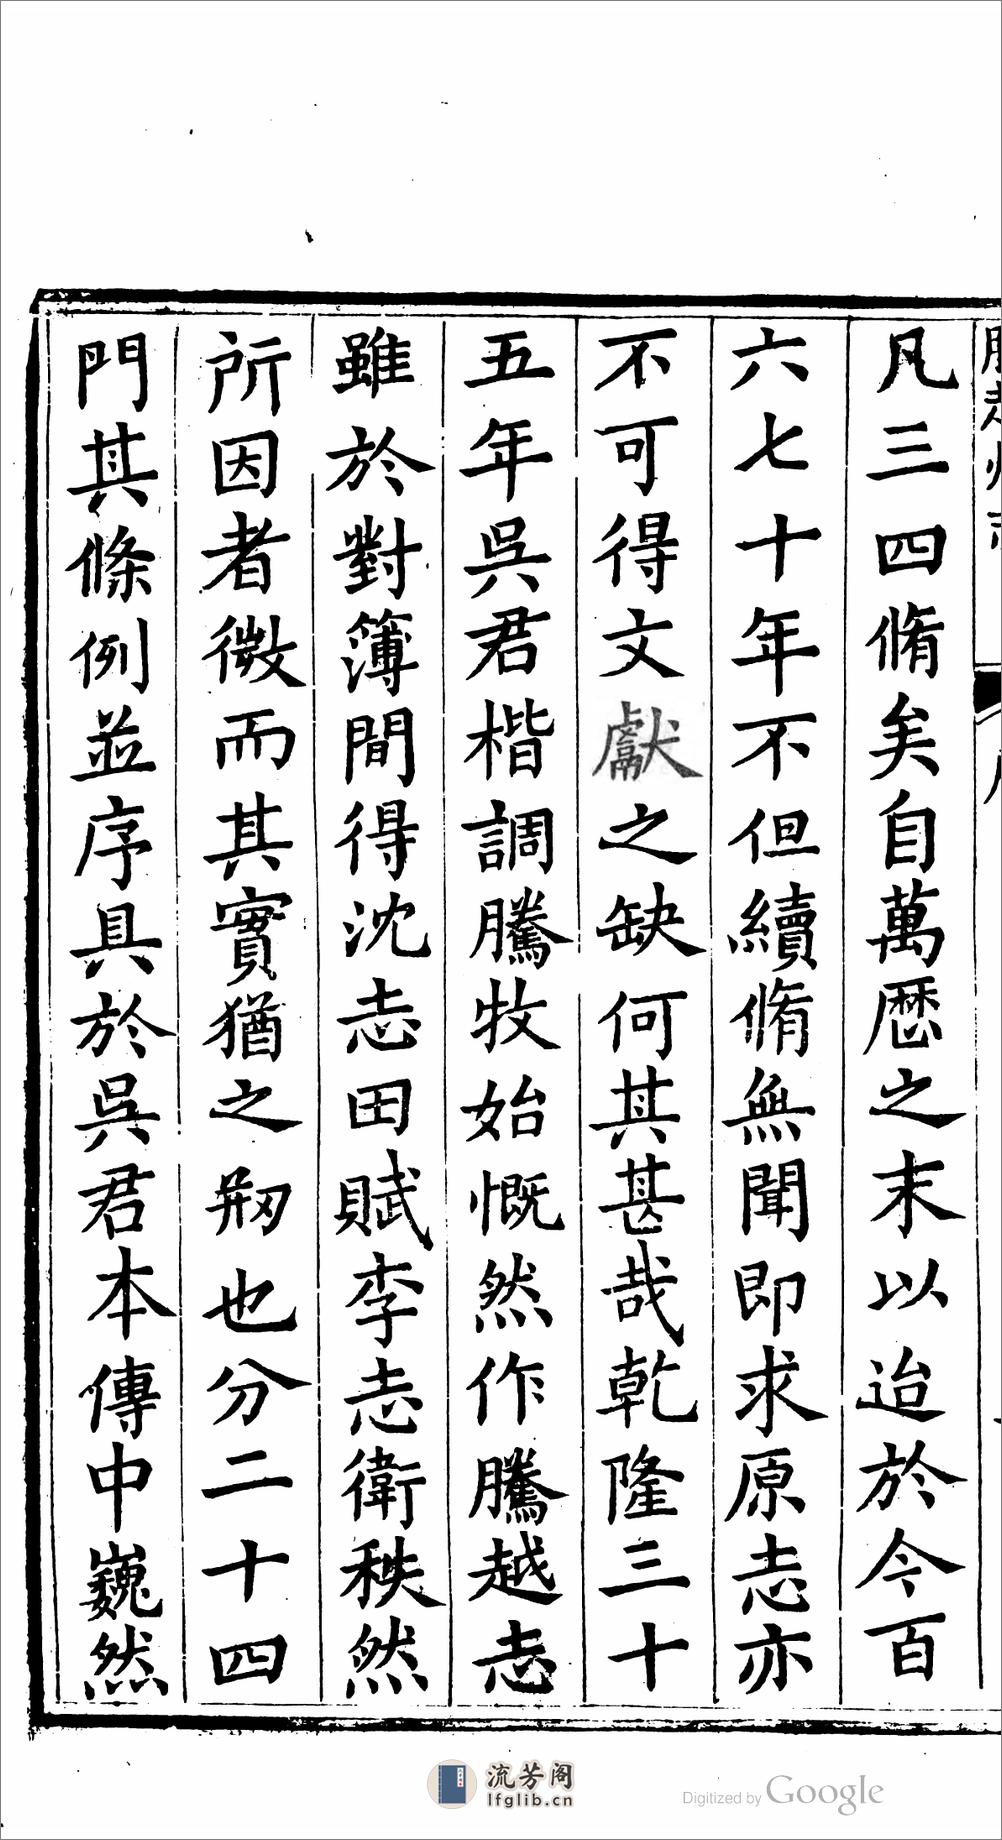 凡三四脩矣自萬厯之末以迨於今百
六七十年不但續脩無聞即求原志亦
不可得文獻之缺何其甚哉乾隆三十
五年吳君楷調騰牧始慨然作騰越志
雖於對簿間得沈志田賦李志衛秩然
所因者微而其實猶之剏也分二十四
門其條例並序具於吳君本傳中巍然
流芳阁
lfglib.cn
Digitized by Google